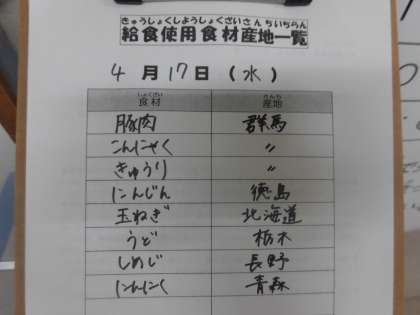 きゅうしょくしようしょくざいさんちいちらん
給食使用食材産地一覧
4月17日（水）
しょくざい さんち
食材 産地
豚肉 群馬
こんにゃく 〃
きゅうり 〃
にんじん 徳島
玉ねぎ 北海道
うど 栃木
しめじ 長野
にんにく 青森